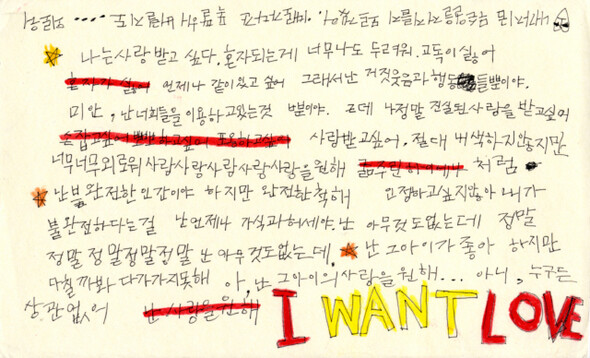 나는사랑 받고 싶다. 혼자되는게 너무나도 두려워. 고독이 싫어
혼자가 싫어 언제나 같이 있고 싶어 그래서 난 거짓웃음과 행동들뿐이야.
미안, 난 너희들을 이용하고있는것 뿐이야. 근데 나정말 진실된 사랑을 받고싶어
손잡고싶어 뽀뽀하고싶어 포옹하고싶어 사랑받고싶어. 절대 내색하지않지만
너무너무 외로워 사랑사랑사랑사랑사랑을원해 굶주린하이에나 처럼
난 불완전한 인간이야 하지만 완전한척해 인정하고싶지않아 내가
불완전하다는걸 난 언제나 가식과허세야. 난 아무것도없는데 정말
정말정말정말정말 난 아무것도없는데. 난 그아이가 좋아 하지만
다칠까봐 다가가지못해 아, 난 그아이의 사랑을 원해... 아니, 누구든
상관없어 난 사랑을원해 I WANT LOVE